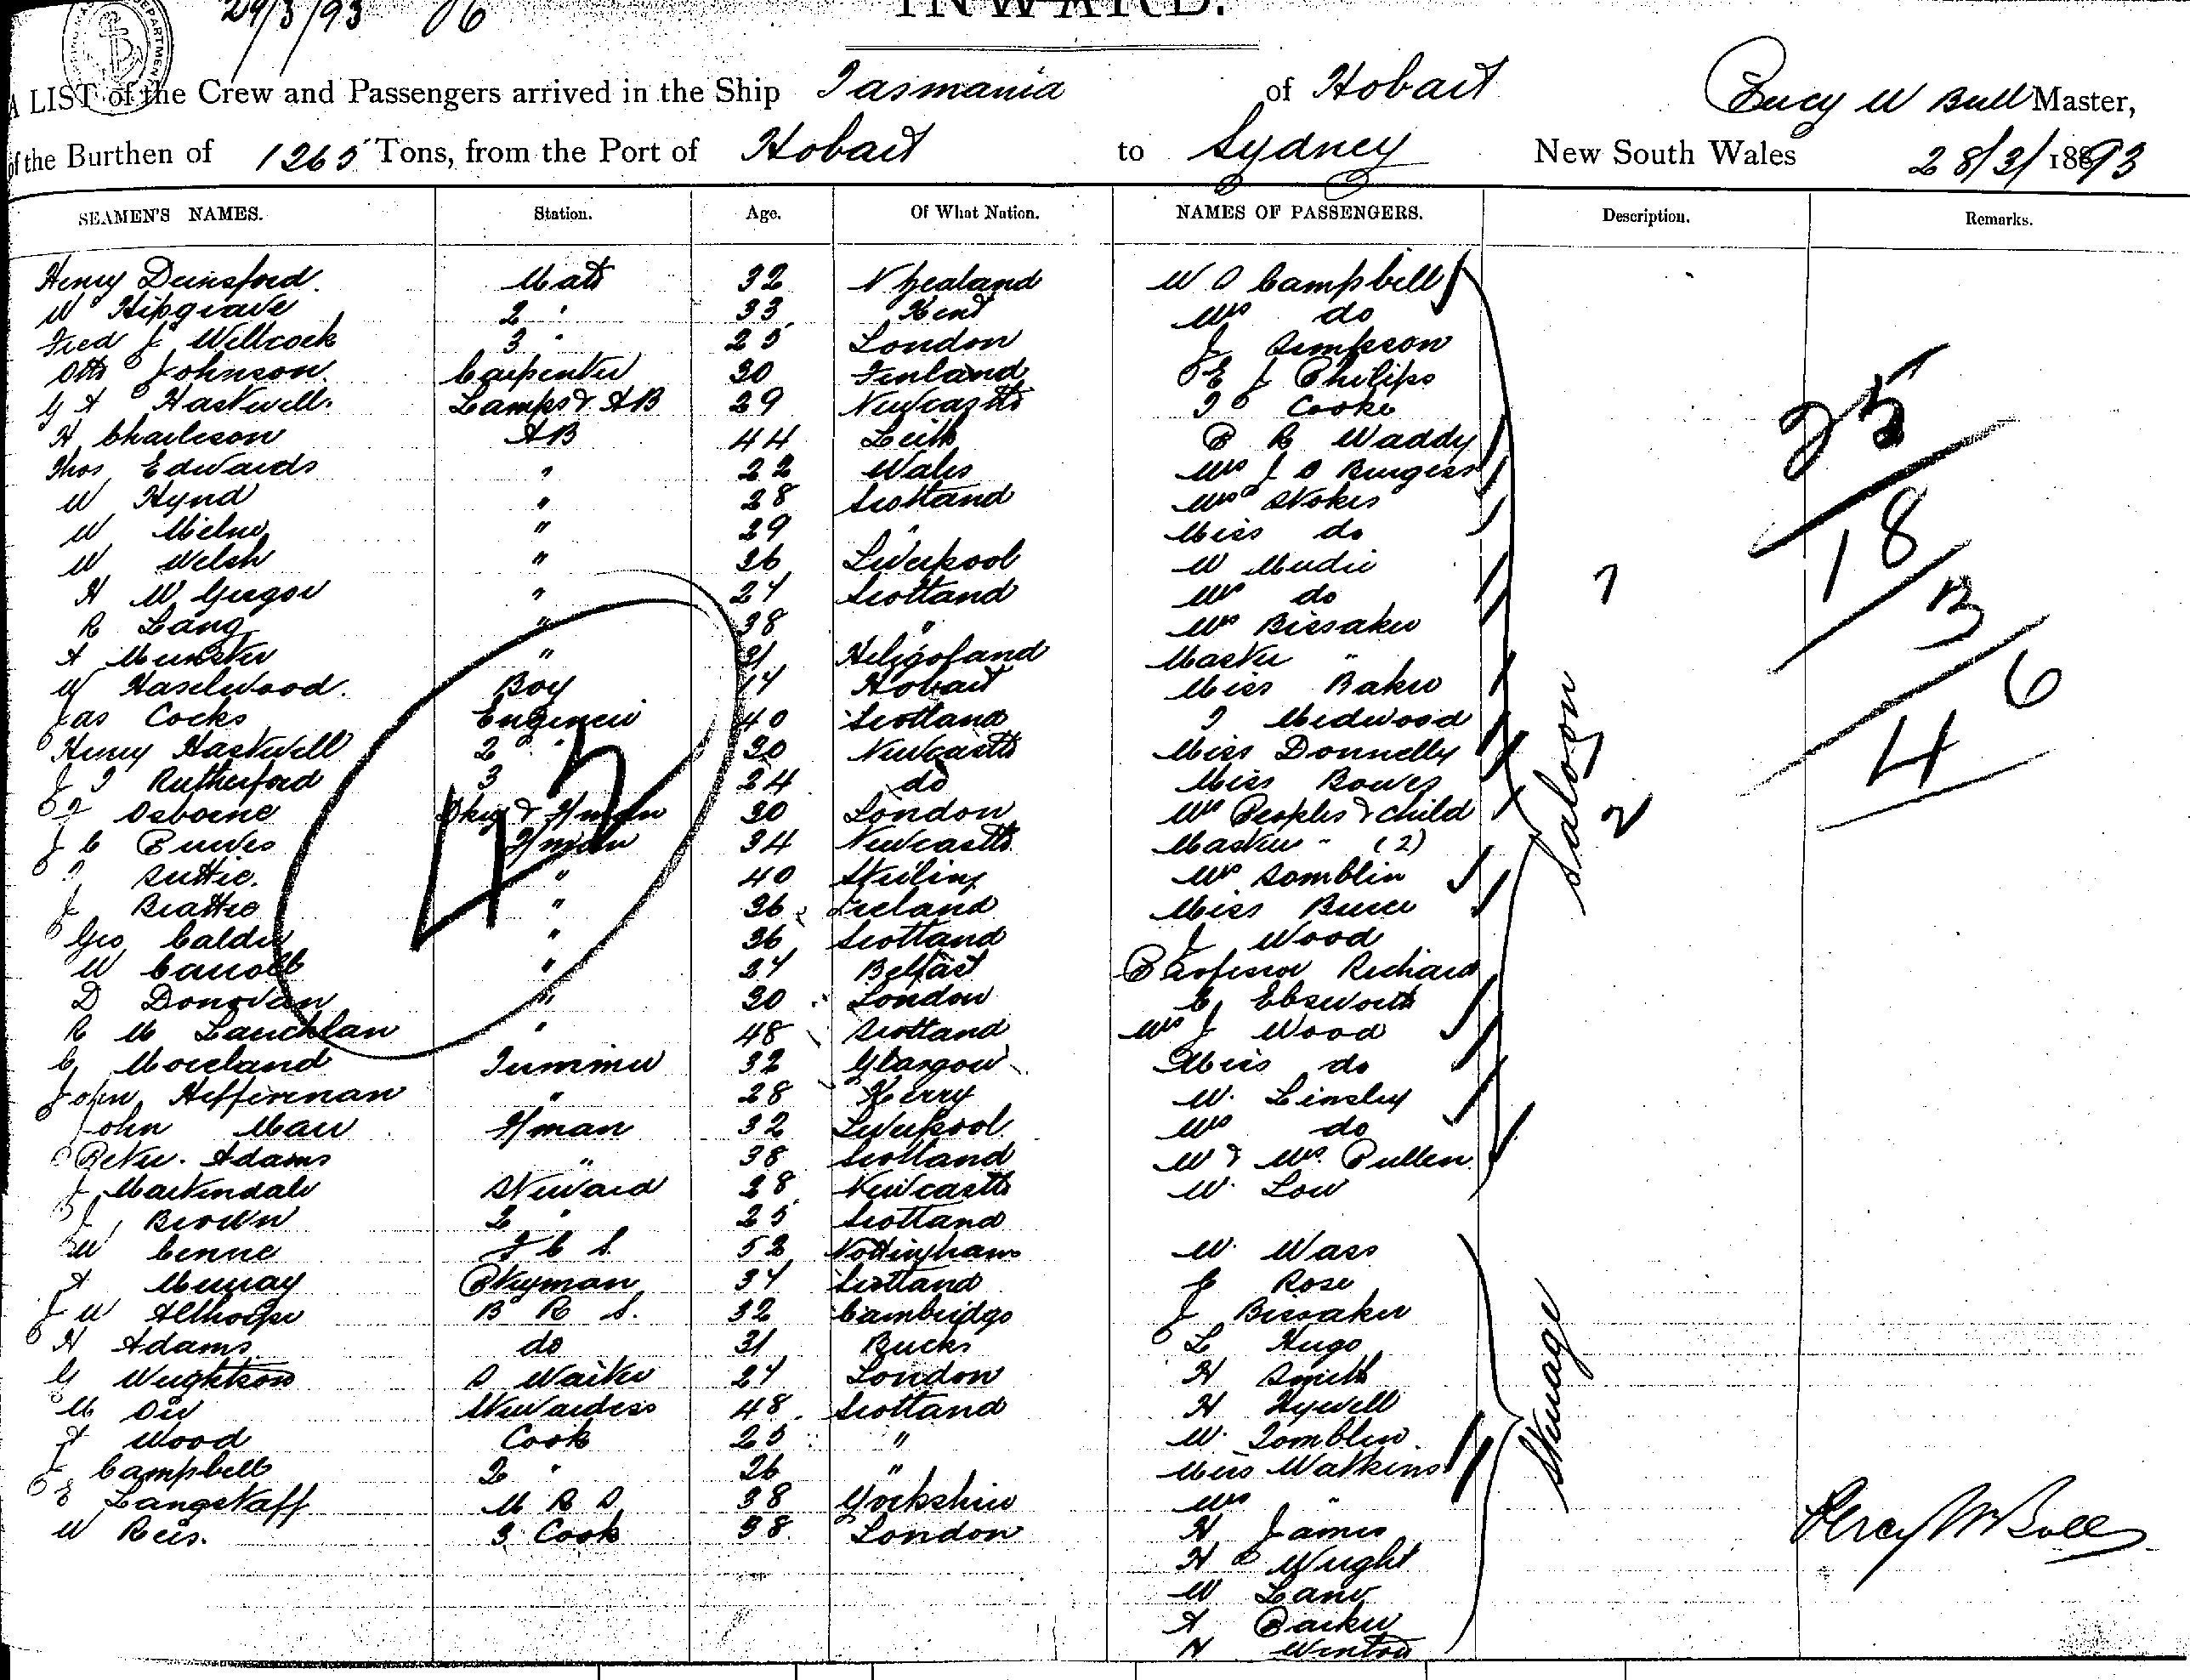 29/3/93 06
INWARD.
A LIST of the Crew and Passengers arrived in the Ship Tasmania of Hobart Percy W Bull Master,
of the Burthen of 1265 Tons, from the Port of Hobart to Sydney New South Wales 28/3/1893
SEAMEN'S NAMES. Station. Age. Of What Nation. NAMES OF PASSENGERS. Description. Remarks.
Henry Dunsford Mate 32 N Zealand W O Campbell
W Hipgrave 2 " 33 Kent Mrs do
Fred J Willcock 3 " 25 London J Simpson
Otto Johnson Carpenter 30 Finland E J Philips
G A Hastwell Lamps & AB 29 Newcastle Cooke
H Charleson AB 44 Leith P R Waddy
Thos Edwards " 22 Wales Mrs J O Burgess
W Hynd " 28 Scotland Mrs Stokes
W Milne " 29 " Miss do
W Welsh " 26 Liverpool W Mudie
H McGregor " 24 Scotland Mrs do
R Lang " 38 " Mrs Bissaker
A Munster " 21 Heligoland Master "
W Haselwood Boy 14 Hobart Miss Baker
Jas Cocks Engineer 40 Scotland Medwood
Henry Hastwell 2 " 30 Newcastle Miss Donnelly
J T Rutherford 3 24 do Miss Bowes
Osborne Dkey & F/man 30 London Mrs Peoples & child
J C Purves F/man 34 Newcastle Masters " (2)
Suttie " 40 Stirling Mrs Somblin
J Beattie " 36 Ireland Miss Bruce
Geo Calder " 36 Scotland J Wood
W Carroll " 24 Belfast Professor Richard
D Donovan " 30 London C Ebsworth
R McLauchlan " 48 Scotland Mrs J Wood
C Moreland Trimmer 32 Glasgow Miss do
John Heffernan " 28 Kerry W. Linsley
John Marr F/man 32 Liverpool Mrs do
Peter Adams " 38 Scotland W & Mrs Pullen
J Martindale Steward 28 Newcastle W. Low
J Brown 2 " 25 Scotland
W Cenne F C S. 52 Nottingham W. Wass
A Murray Ptryman 34 Scotland E Rose
J W Althorpe B R S. 32 Cambridge J Bissaker
H Adams do 31 Bucks L Hugo
G Wrightson S Waiter 24 London H Smith
M Orr Stewardess 48 Scotland H Hywell
A Wood Cook 25 " W. Tomblin
J Campbell 2 " 26 " Miss Watkins
E Langstaff M R S 38 Yorkshire Mrs "
W Reis. 3 Cook 38 London H James
H Wright
W Lane
A Parker
N Winton
Saloon
Steerage
42
7
2
25
18
13
6
4
Percy W Bull